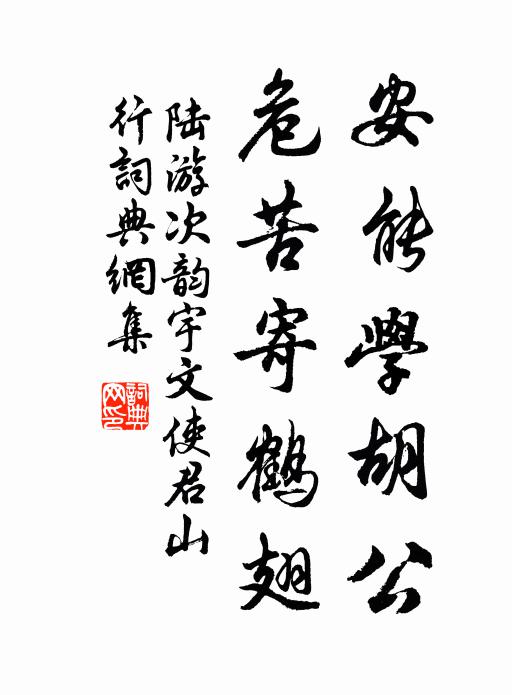 安能學胡公
危苦寄鶴翅
陆游次韵宇文使君山
行詞典網集
詞典网印